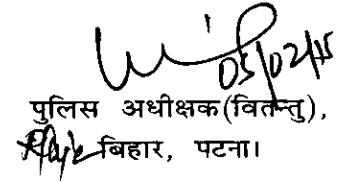 05/02/15
पुलिस अधीक्षक(वितन्तु),
बिहार, पटना।